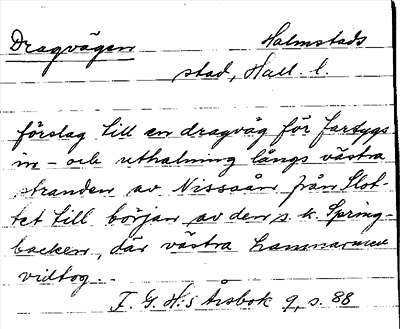 Dragvägen Halmstads
stad, Hall. l.
förslag till en dragväg för fartygs
in- och uthalning längs västra
stranden av Nissaån från Slot-
tet till början av den s. k. Spring-
backen, där västra hamnarmen
vidtog.
F. G. H:s Årsbok 9, s. 88